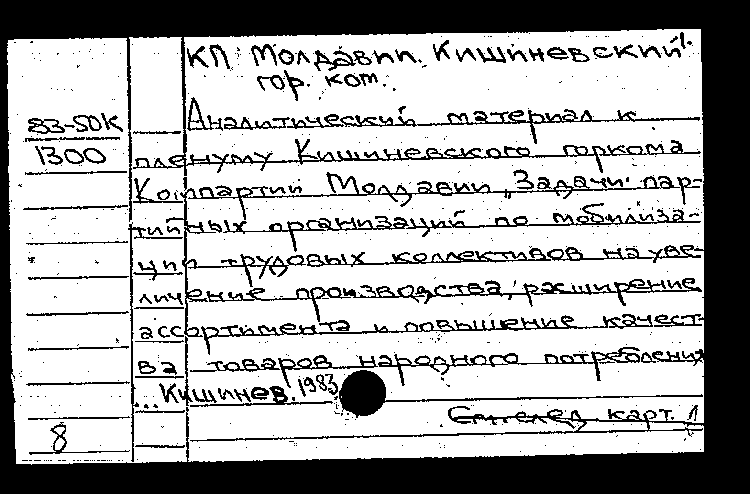 КП Молдавии. Кишиневский
гор. ком.
83-50К
1300
Аналитический материал к
пленуму Кишиневского горкома
Компартии Молдавии "Задачи пар-
тийных организаций по мобилиза-
ции трудовых коллективов на уве-
личение производства, расширение
ассортимента и повышение качест-
ва товаров народного потребления
... Кишинев. 1983
карт. 1
8